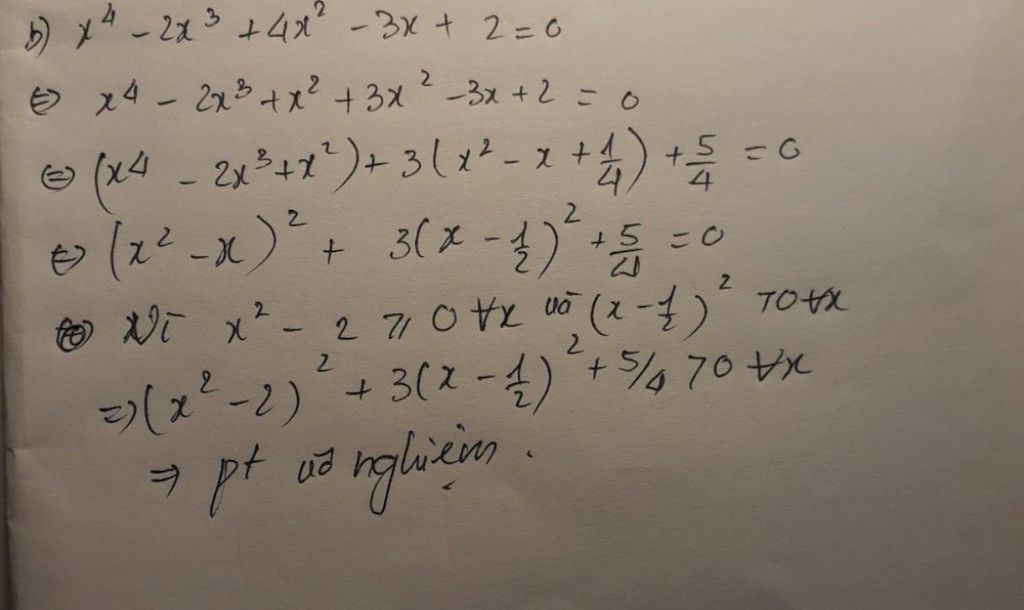 b) x⁴ - 2x³ + 4x² - 3x + 2 = 0
⇔ x⁴ - 2x³ + x² + 3x² - 3x + 2 = 0
⇔ (x⁴ - 2x³ + x²) + 3(x² - x + 1/4) + 5/4 = 0
⇔ (x² - x)² + 3(x - 1/2)² + 5/4 = 0
Vì x² - 2 ≥ 0 ∀x và (x - 1/2)² ≥ 0 ∀x
⇒ (x² - 2)² + 3(x - 1/2)² + 5/4 > 0 ∀x
⇒ pt vô nghiệm.